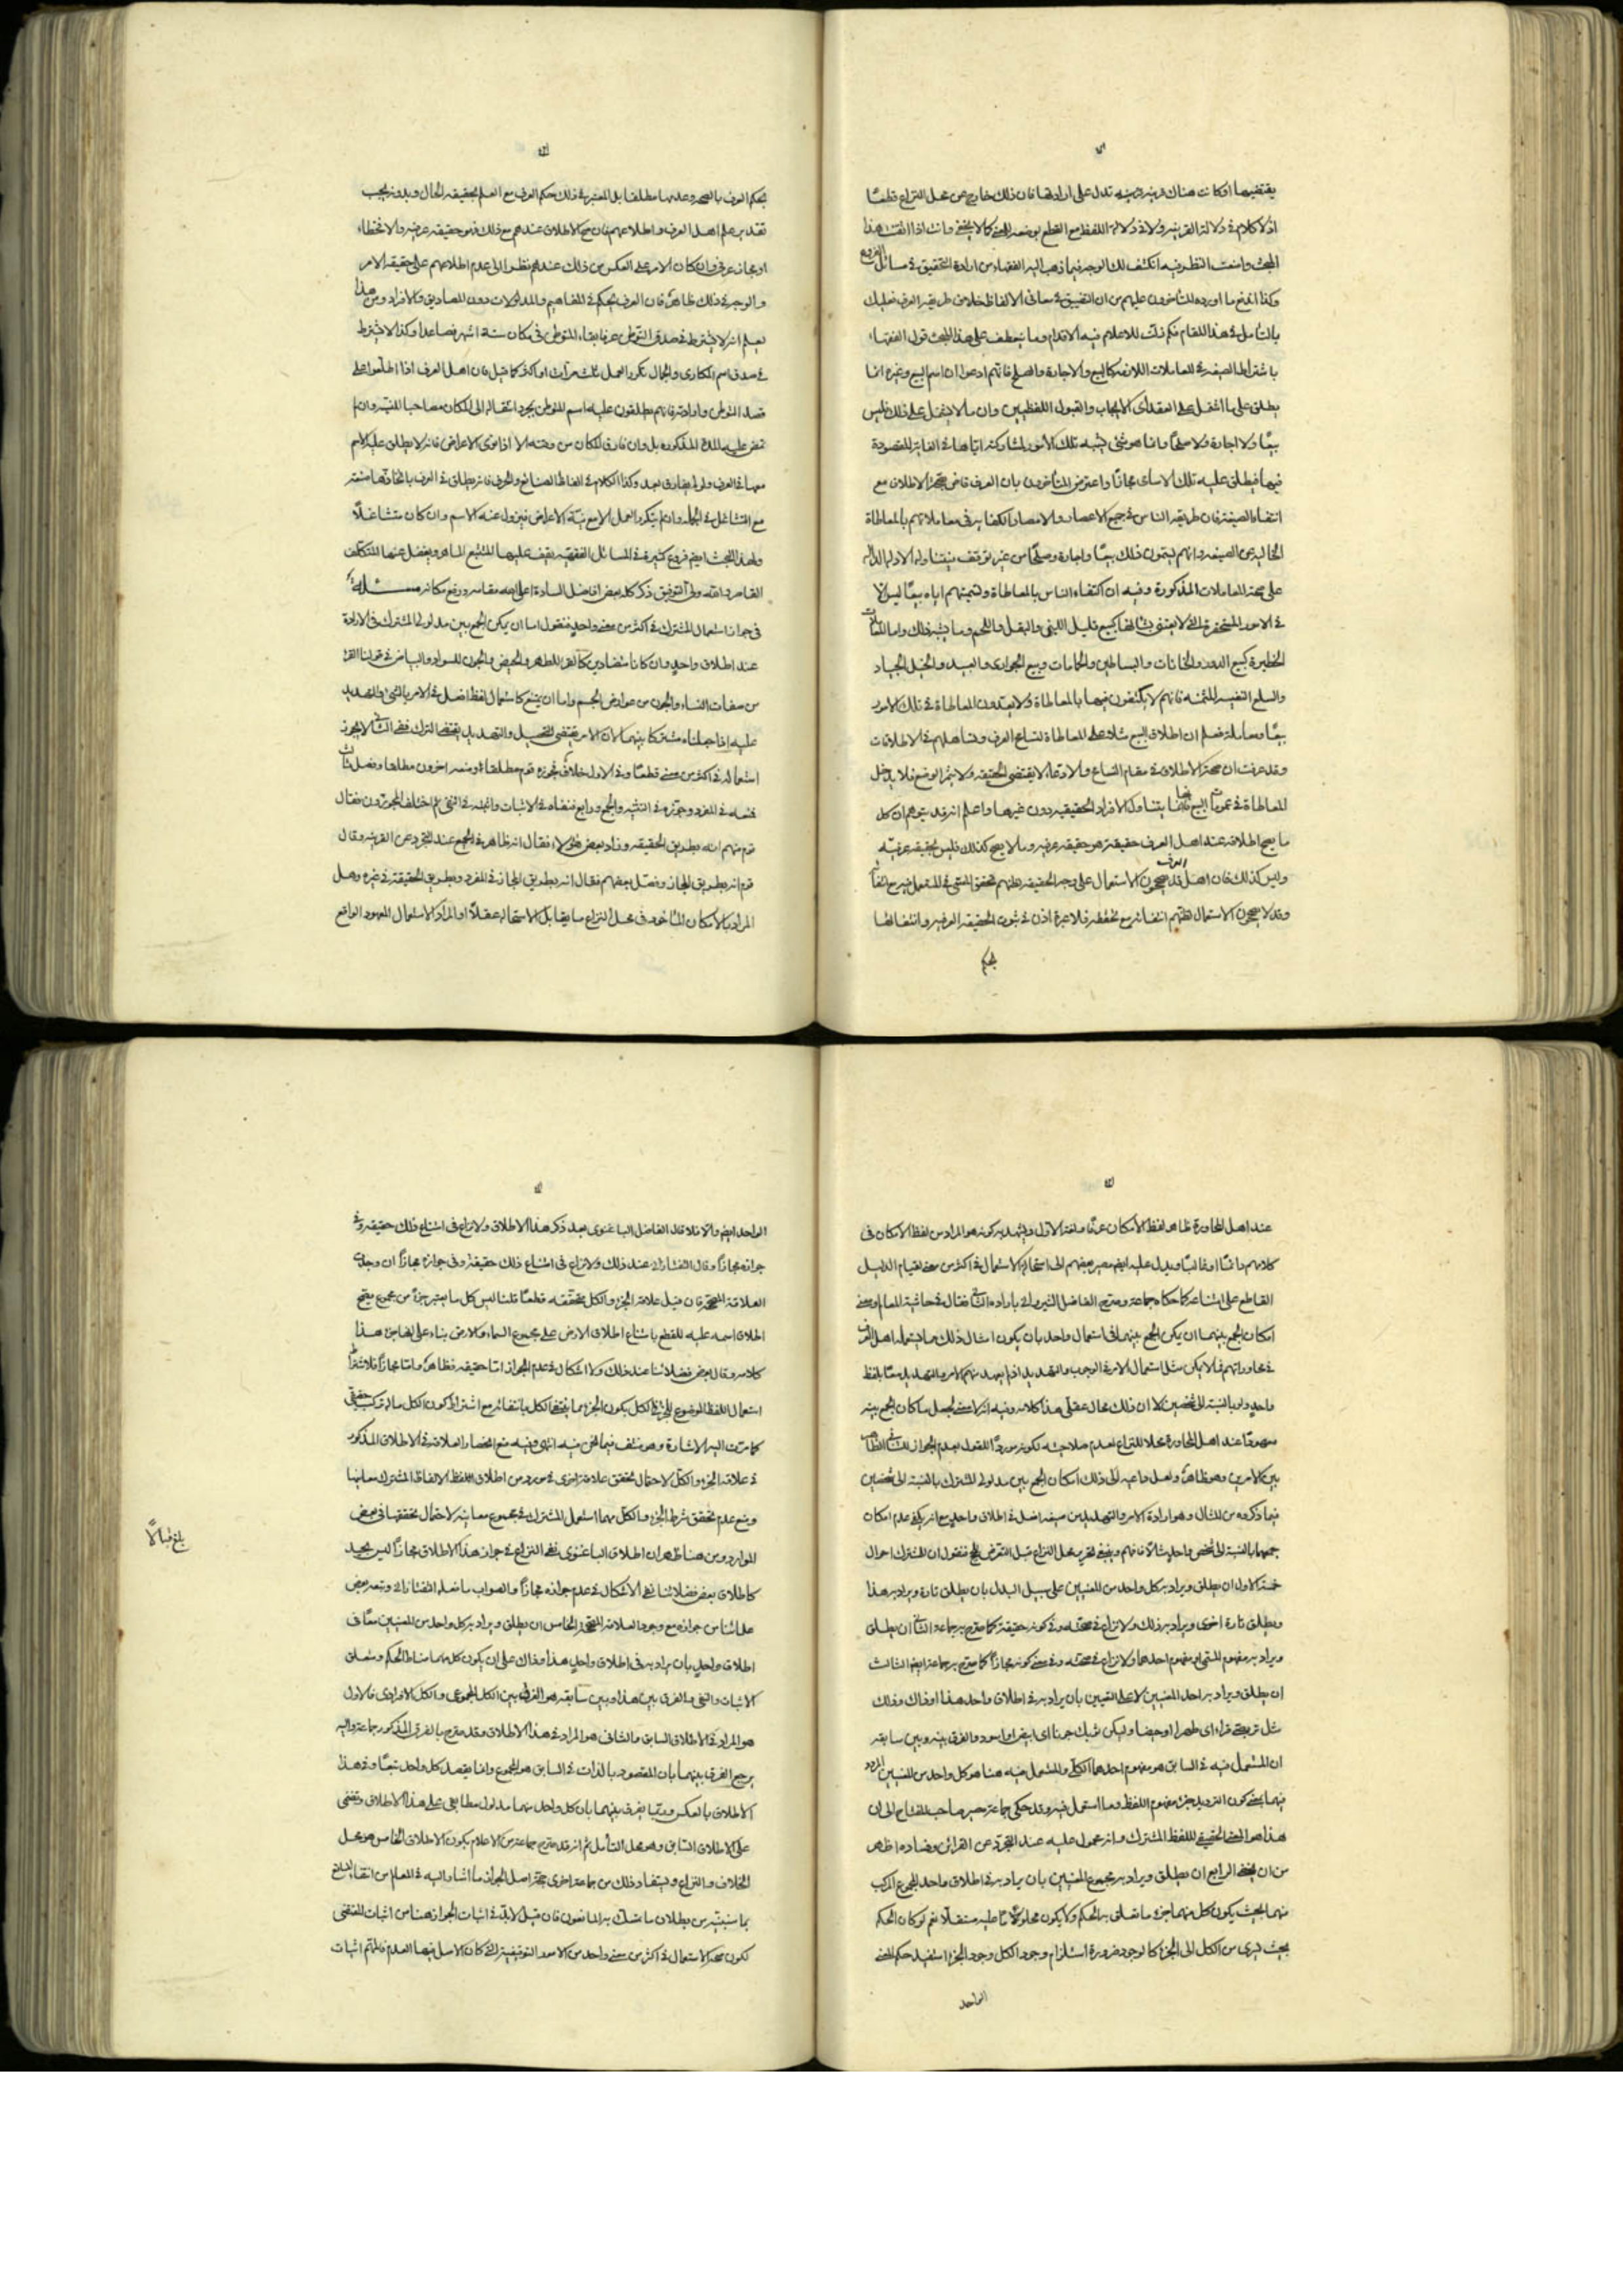 يقتضيها او كانت هناك قرينة تدل على ارادتها فان ذلك خارج عن محل النزاع قطعًا
اذ لا كلام في دلالة القرينة ولا في دلالة اللفظ مع القطع بوضعه للمعنى كما لا يخفى وانت اذا اتقنت هذا
المبحث وامعنت النظر فيه انكشف لك الوجه فيما ذهب اليه الفقهاء من ارادة التحقيق في مسائل الفروع
وكذا اندفع ما اورده المتأخرون عليهم من ان التضييق في معاني الالفاظ خلاف طريقة العرف فعليك
بالتأمل في هذا المقام فكم زلت للاعلام فيه الاقدام ومما ينعطف على هذا المبحث قول الفقهاء
باشتراط الصيغة في المعاملات اللازمة كالبيع والاجارة والصلح فانهم ادعوا ان اسم البيع وغيره انما
يطلق على ما اشتمل على العقد اى الايجاب والقبول اللفظيين وان ما لا يشتمل على ذلك فليس
بيعًا ولا اجارة ولا صلحًا وانما هو شئ يشبه تلك الأمور لمشاركته اياها في الغاية المقصودة
فيها فيطلق عليه تلك الاسامى مجازًا واعترض المتأخرون بان العرف قاض بصحة الاطلاق مع
انتفاء الصيغة فان طريقة الناس في جميع الاعصار والامصار الاكتفاء في معاملاتهم بالمعاطاة
الخالية عن الصيغة وانهم يسمون ذلك بيعًا واجارة وصلحًا من غير توقف فيتناوله الادلة الدالة
على صحة المعاملات المذكورة وفيه ان اكتفاء الناس بالمعاطاة وتسميتهم اياه بيعًا ليس الا
في الامور المستحقرة التى لا يعتنى بشأنها كبيع قليل اللبن والبقل واللحم وما يشبه ذلك واما المعاملات
الخطيرة كبيع الدور والخانات والبساطين والحمامات وبيع الجوارى والعبيد والخيل الجياد
والسلع النفيسة المثمنة فانهم لا يكتفون فيها بالمعاطاة ولا يعتدون المعاطاة في تلك الامور
بيعًا ومعاملة فعلم ان اطلاق البيع مثلا على المعاطاة لتسامح العرف وتساهلهم في الاطلاقات
وقد عرفت ان صحة الاطلاق في مقام التسامح والادعاء لا يقتضى الحقيقة ولا يثمر الوضع فلا يدخل
المعاطاة في عمومات البيع فانها يتناول الافراد الحقيقية دون غيرها واعلم انه قد يتوهم ان كل
ما يصح اطلاقه عند اهل العرف حقيقة فهو حقيقة عرفية وما لا يصح كذلك فليس بحقيقة عرفية
وليس كذلك فان اهل العرف قد يصححون الاستعمال على وجه الحقيقة لظنهم تحقق المسمى في المستعمل فيه مع انتفائه
وقد لا يصححون الاستعمال لظنهم انتفائه مع تحققه فلا عبرة اذن في ثبوت الحقيقة العرفية وانتفائها
بحكم
بحكم العرف بالصحة وعدمها مطلقا بل المعتبر في ذلك حكم العرف مع العلم بحقيقة الحال وبدونه يجب
تقدير علم اهل العرف واطلاعهم فان صح الاطلاق عندهم مع ذلك فهو حقيقة عرفية والا فخطاء
او مجاز عرفى وان كان الامر على العكس من ذلك عندهم نظرا الى عدم اطلاعهم على حقيقة الامر
والوجه في ذلك ظاهر فان العرف يحكم في المفاهيم والمدلولات دون المصاديق والافراد ومن هذا
يعلم انه لا يشترط في صدق التوطن عرفا بقاء المتوطن في مكان ستة اشهر فصاعدا وكذا لا يشترط
في صدق اسم المكارى والجمال تكرر العمل ثلث مرات او اكثر كما قيل فان اهل العرف اذا اطلعوا على
قصد المتوطن واوادته فانهم يطلقون عليه اسم المتوطن بمجرد انتقاله الى المكان مصاحبا للنية وان لم
تمض عليه المدة المذكورة بل وان فارق المكان من وقته الا اذا نوى الاعراض فانه لا يطلق عليه الاسم
معها في العرف ولو لم يفارق بعد وكذا الكلام في الفاظ الصنائع والحرف فانه يطلق في العرف باتخاذها صنعة
مع التشاغل في الجملة وان لم يتكرر العمل الا مع نية الاعراض فيزول عنه الاسم وان كان متشاغلًا
ولهذا المبحث ايضا فروع كثيرة في المسائل الفقهية يقف عليها المتتبع الماهر ويغفل عنها المتكلف
القاصر والله ولى التوفيق ذكر كله بعض افاضل السادة اعلى الله مقامه ورفع مكانه مسئلة
في جواز استعمال المشترك في اكثر من معنى واحد فنقول اما ان يمكن الجمع بين مدلولى المشترك في الارادة
عند اطلاق واحد وان كانا متضادين كالقرء للطهر والحيض والجون للسواد والبياض في قولنا القرء
من صفات النساء والجون من عوارض الجسم واما ان يمتنع كاستعمال لفظ افعل في الامر بالشئ والتهديد
عليه اذا جعلناه مشتركا بينهما لان الامر يقتضى التحصيل والتهديد يقتضى الترك ففى الثانى لا يجوز
استعماله في اكثر من معنى قطعًا وفي الاول خلاف فجوزه قوم مطلقا ومنعه اخرون مطلقا وفصل ثالث
فمنعه في المفرد وجوزه في التثنية والجمع ورابع فنفاه في الاثبات واثبته في النفى ثم اختلف المجوزون فقال
قوم منهم انه بطريق الحقيقة وزاد بعض هؤلاء فقال انه ظاهر في الجميع عند التجرد عن القرينة وقال
قوم انه بطريق المجاز وفصل بعضهم فقال انه بطريق المجاز في المفرد وبطريق الحقيقة في غيره وهل
المراد بالامكان المأخوذ في محل النزاع ما يقابل الاستحالة عقلًا او المراد الاستعمال المعهود الواقع
عند اهل المحاورة ظاهر لفظ الأمكان عرفًا ولغة الاول ويشهد به كونه هو المراد من لفظ الامكان في
كلامهم دائمًا او غالبًا ويدل عليه ايضا مصير بعضهم الى استحالة الاستعمال في اكثر من معنى لقيام الدليل
القاطع على امتناعه كما حكاه جماعة وصرح الفاضل الشيروانى بارادة الثانى فقال في حاشية المعالم ومعنى
امكان الجمع بينهما ان يكون الجمع بينهما في استعمال واحد بان يكون امثال ذلك مما يستعمله اهل العرف
في محاوراتهم فلا يمكن مثل استعمال الامر في الوجوب والتهديد اذ لم يعهد منهم الامر والتهديد معًا بلفظ
واحد ولو بالنسبة الى شخصين لا ان ذلك محال عقلى هذا كلامه وفيه انه لا معنى لجعل ما كان الجمع بينه
معهودًا عند اهل المحاورة محلا للنزاع لعدم صلاحيته لكونه موردًا للقول بعدم الجواز
بين الامرين وهو ظاهر ولعل داعيه الى ذلك امكان الجمع بين مدلولى المشترك بالنسبة الى شخصين
فيما ذكروه من المثال وهو ارادة الامر والتهديد من صيغة افعل في اطلاق واحد مع انه يكفى عدم امكان
جمعهما بالنسبة الى شخص واحد مثلا فافهم وينبغى تحرير محل النزاع قبل التعرض للحجج فنقول ان للمشترك احوال
خمسة الاول ان يطلق ويراد به كل واحد من المعنيين على سبيل البدل بان يطلق تارة ويراد به هذا
ويطلق تارة اخرى ويراد به ذلك ولا نزاع في صحته وفي كونه حقيقة كما صرح به جماعة الثانى ان يطلق
ويراد به مفهوم المسمى او مفهوم احدهما ولا نزاع في صحته وفي كونه مجازًا كما صرح به جماعة ايضا الثالث
ان يطلق ويراد به احد المعنيين لا على التعيين بان يراد به في اطلاق واحد هذا او ذاك وذلك
مثل تربصى قرءا اى طهرا او حيضا وليكن ثوبك جونا اى ابيض او اسود والفرق بينه وبين سابقه
ان المستعمل فيه في السابق هو مفهوم احدهما الكلى والمستعمل فيه هنا هو كل واحد من المعنيين المردد
فيهما بمعنى كون الترديد جزء مفهوم اللفظ وما استعمل فيه وقد حكى جماعة مصير صاحب المفتاح الى ان
هذا هو المعنى الحقيقى للفظ المشترك وانه محمول عليه عند التجرد عن القرائن وفساده اظهر
من ان يخفى الرابع ان يطلق ويراد به مجموع المعنيين بان يراد به في اطلاق واحد المجموع المركب
منهما بحيث يكون كل منهما جزء ما تعلق به الحكم ولا يكون محكومًا عليه مستقلًا نعم لو كان الحكم
بحيث يسرى من الكل الى الجزء كالوجود ضرورة استلزام وجود الكل وجود الجزء استفيد حكم المعنى
الواحد
الواحد ايضا والا فلا قال الفاضل الباغنوى بعد ذكر هذا الاطلاق ولا نزاع في امتناع ذلك حقيقة وفى
جوازه مجازًا وقال التفتازانى عند ذلك ولا نزاع في امتناع ذلك حقيقة وفي جوازه مجازًا ان وجدت
العلاقة المصححة فان قيل علاقة الجزء والكل متحققة قطعًا قلنا ليس كل ما يعتبر جزءً من مجموع يصح
اطلاق اسمه عليه للقطع بامتناع اطلاق الارض على مجموع السماء والارض بناء على انها جزء هذا
كلامه وقال بعض فضلائنا عند ذلك ولا اشكال في عدم الجواز اما حقيقة فظاهر واما مجازًا فلاشتراط
استعمال اللفظ الموضوع للجزء في الكل بكون الجزء مما ينتفى الكل بانتفائه مع اشتراط كون الكل مما له تركب حقيقى
كما مرت اليه الاشارة وهو منتف فيما نحن فيه انتهى وفيه منع انحصار العلاقة في الاطلاق المذكور
في علاقة الجزء والكل لاحتمال تحقق علاقة اخرى في مورد من اطلاق اللفظ الالفاظ المشترك معانيها
ومنع عدم تحقق شرط الجزء والكل مهما استعمل المشترك في مجموع معانيه لاحتمال تحققها في بعض
الموارد ومن هنا ظهر ان اطلاق الباغنوى نفى النزاع في جواز هذا الاطلاق مجازًا ليس بجيد
كاطلاق بعض فضلائنا نفى الاشكال في عدم جوازه مجازًا والصواب ما فعله التفتازانى وتبعه بعض
علمائنا من جوازه مع وجود العلاقة المصححة الخامس ان يطلق ويراد به كل واحد من المعنيين معًا في
اطلاق واحد بان يراد به في اطلاق واحد هذا وذاك على ان يكون كل منهما مناط الحكم ومتعلق
الاثبات والنفى والفرق بين هذا وبين سابقه هو الفرق بين الكل المجموعى والكل الافرادى فالاول
هو المراد في الاطلاق السابق والثانى هو المراد في هذا الاطلاق وقد صرح بالفرق المذكور جماعة واليه
يرجع الفرق بينهما بان المقصود بالذات في السابق هو المجموع وانما يقصد كل واحد تبعًا وفي هذا
الاطلاق بالعكس وربما يفرق بينهما بان كل واحد منهما مدلول مطابقى على هذا الاطلاق وتضمنى
على الاطلاق السابق وهو محل التأمل ثم انه قد صرح جماعة من الاعلام بكون الاطلاق الخامس هو محل
الخلاف والنزاع ويستفاد ذلك من جماعة اخرى حجة اصل الجواز ما اشار اليه في المعالم من انتفاء المانع
بما سنبينه من بطلان ما تمسك به المانعون فان قيل لا بد في اثبات الجواز هنا من اثبات المقتضى
لكون صحة الاستعمال في اكثر من معنى واحد من الامور التوقيفية التى كان الاصل فيها العدم فما لم يتم اثبات
بلغ قبالًا